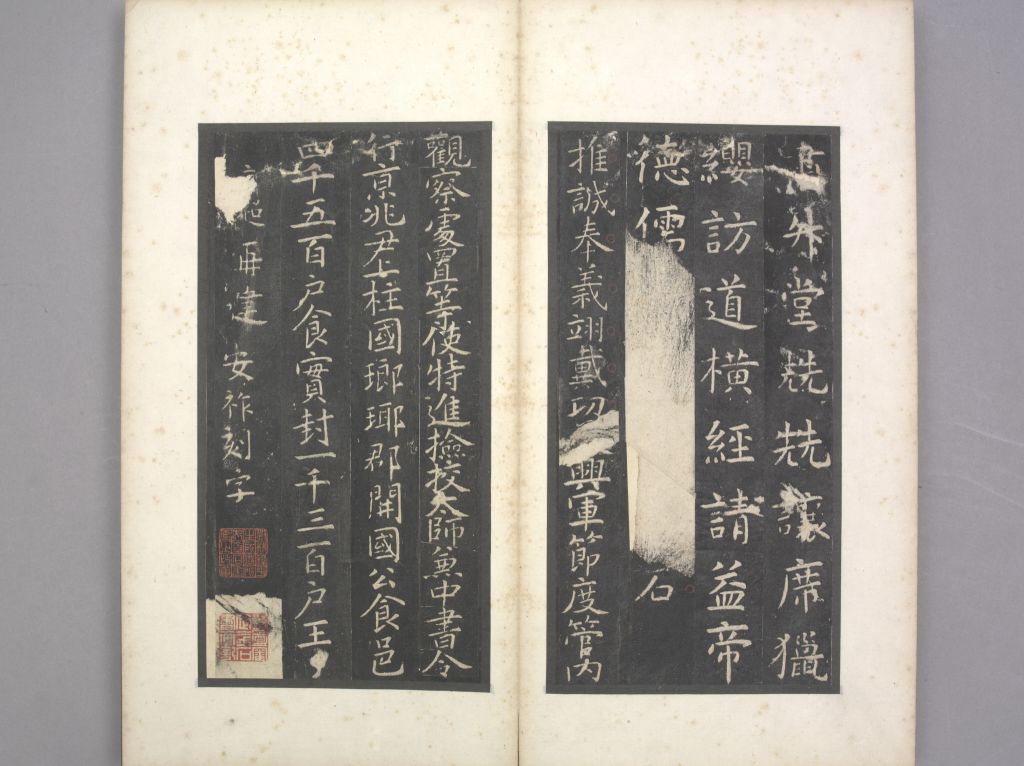 升堂兟兟讓席獵
纓訪道橫經請益帝
德儒石
推誠奉義翊戴功興軍節度管內
觀察處置等使特進撿挍太師兼中書令
行京兆尹上柱國瑯瑘郡開國公食邑
四千五百戶食實封一千三百戶王
再建 安祚刻字